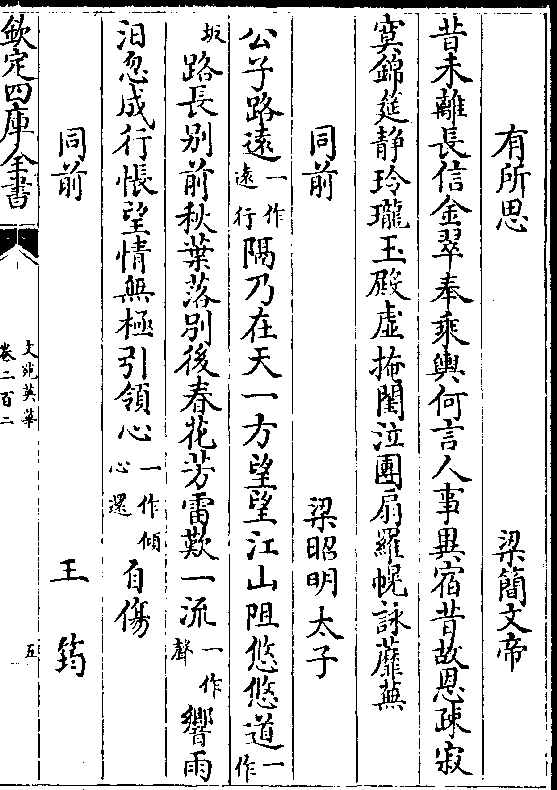 有所思　梁簡文帝
昔未離長信金翠奉乘輿何言人事異宿昔故恩疎寂
寞錦筵静玲瓏玉殿虚掩閨泣團扇羅幌詠蘼蕪
同前　梁昭明太子
公子路遠一作遠行隔乃在天一方望望江山阻悠悠道一作
坂路長别前秋葉落别後春花芳雷歎一流一作聲響雨
泪忽成行悵望情無極引領心一作傾心還自傷
同前　王筠
欽定四庫全書
文苑英華
卷二百二
五